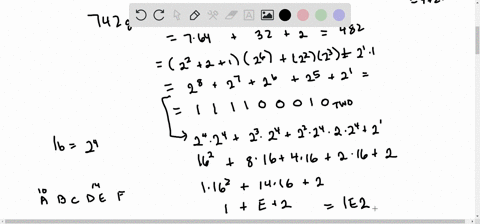 742₈
= 7·64 + 32 + 2 = 482
= (2² + 2 + 1)(2⁶) + (2²)(2³) + 2¹·1
= 2⁸ + 2⁷ + 2⁶ + 2⁵ + 2¹ =
= 1 1 1 1 0 0 0 1 0 TWO
2⁴·2⁴ + 2³·2⁴ + 2²·2⁴ + 2·2⁴ + 2¹
16 = 2⁴
16² + 8·16 + 4·16 + 2·16 + 2
1·16² + 14·16 + 2
10 14
A B C D E F
1 + E + 2 = 1E2